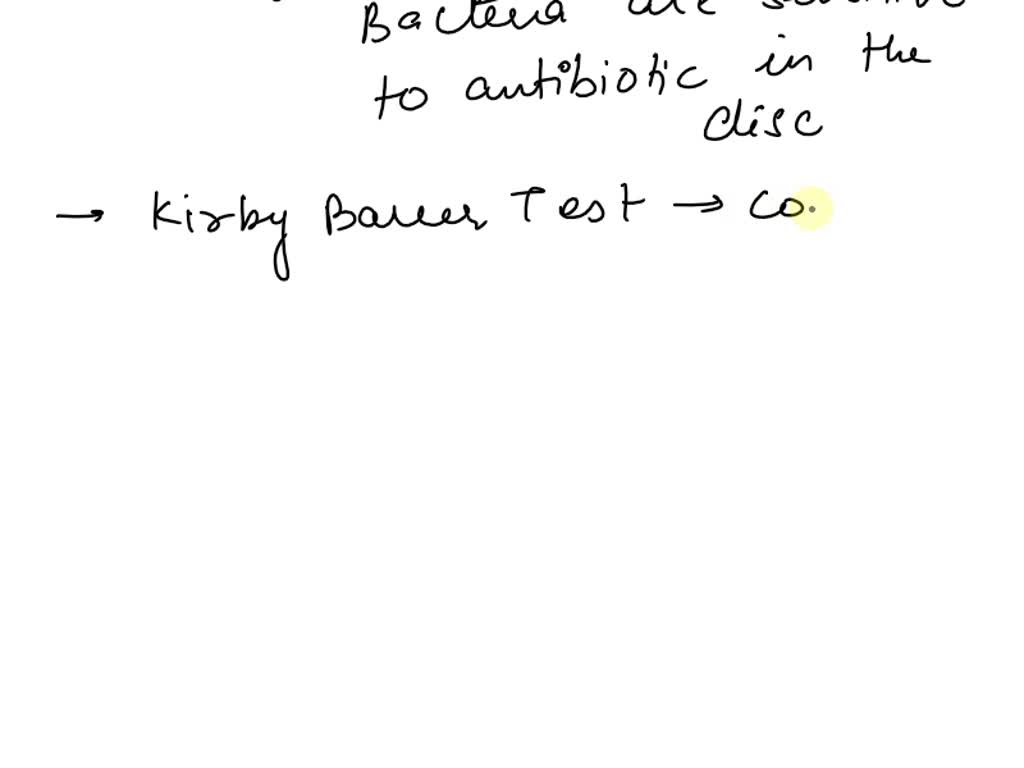 Bacteria are sensitive
to antibiotic in the
disc
→ Kirby Bauer Test → co.